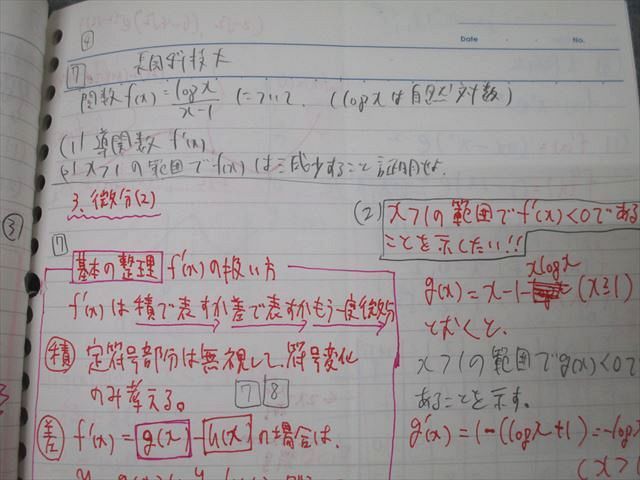 ④
Date
No.
7 長岡技科大
関数 f(x) = log x / x-1 について. (log x は自然対数)
(1) 導関数 f'(x)
(2) x>1 の範囲で f(x) は減少すること証明せよ.
3. 微分(2)
③
7
基本の整理 f'(x) の扱い方
f'(x) は 積で表すか 差で表すか もう一度微分
積 定符号部分は無視して、符号変化
のみ考える。 7 8
差 f'(x) = g(x) - h(x) の場合は、
(2) x>1 の範囲で f'(x)<0 である
ことを示したい!!
g(x) = x-1- x log x (x≧1)
とおくと、
x>1 の範囲で g(x)<0 で
あることを示す。
g'(x) = 1-(log x+1) = -log x
(x>1